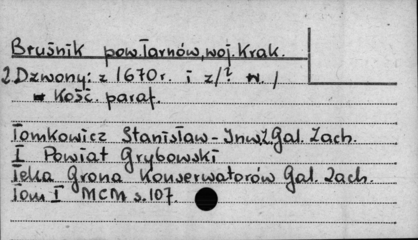 Bruśnik pow. Tarnów, woj. Krak.
2 Dzwony: z 1670 r. i z /? w. /
w Kość. paraf.
Tomkowicz Stanisław - Inwź. Gal. Zach.
I Powiat Grybowski
Teka Grona Konserwatorów Gal. Zach.
Tom I MCM s. 107.